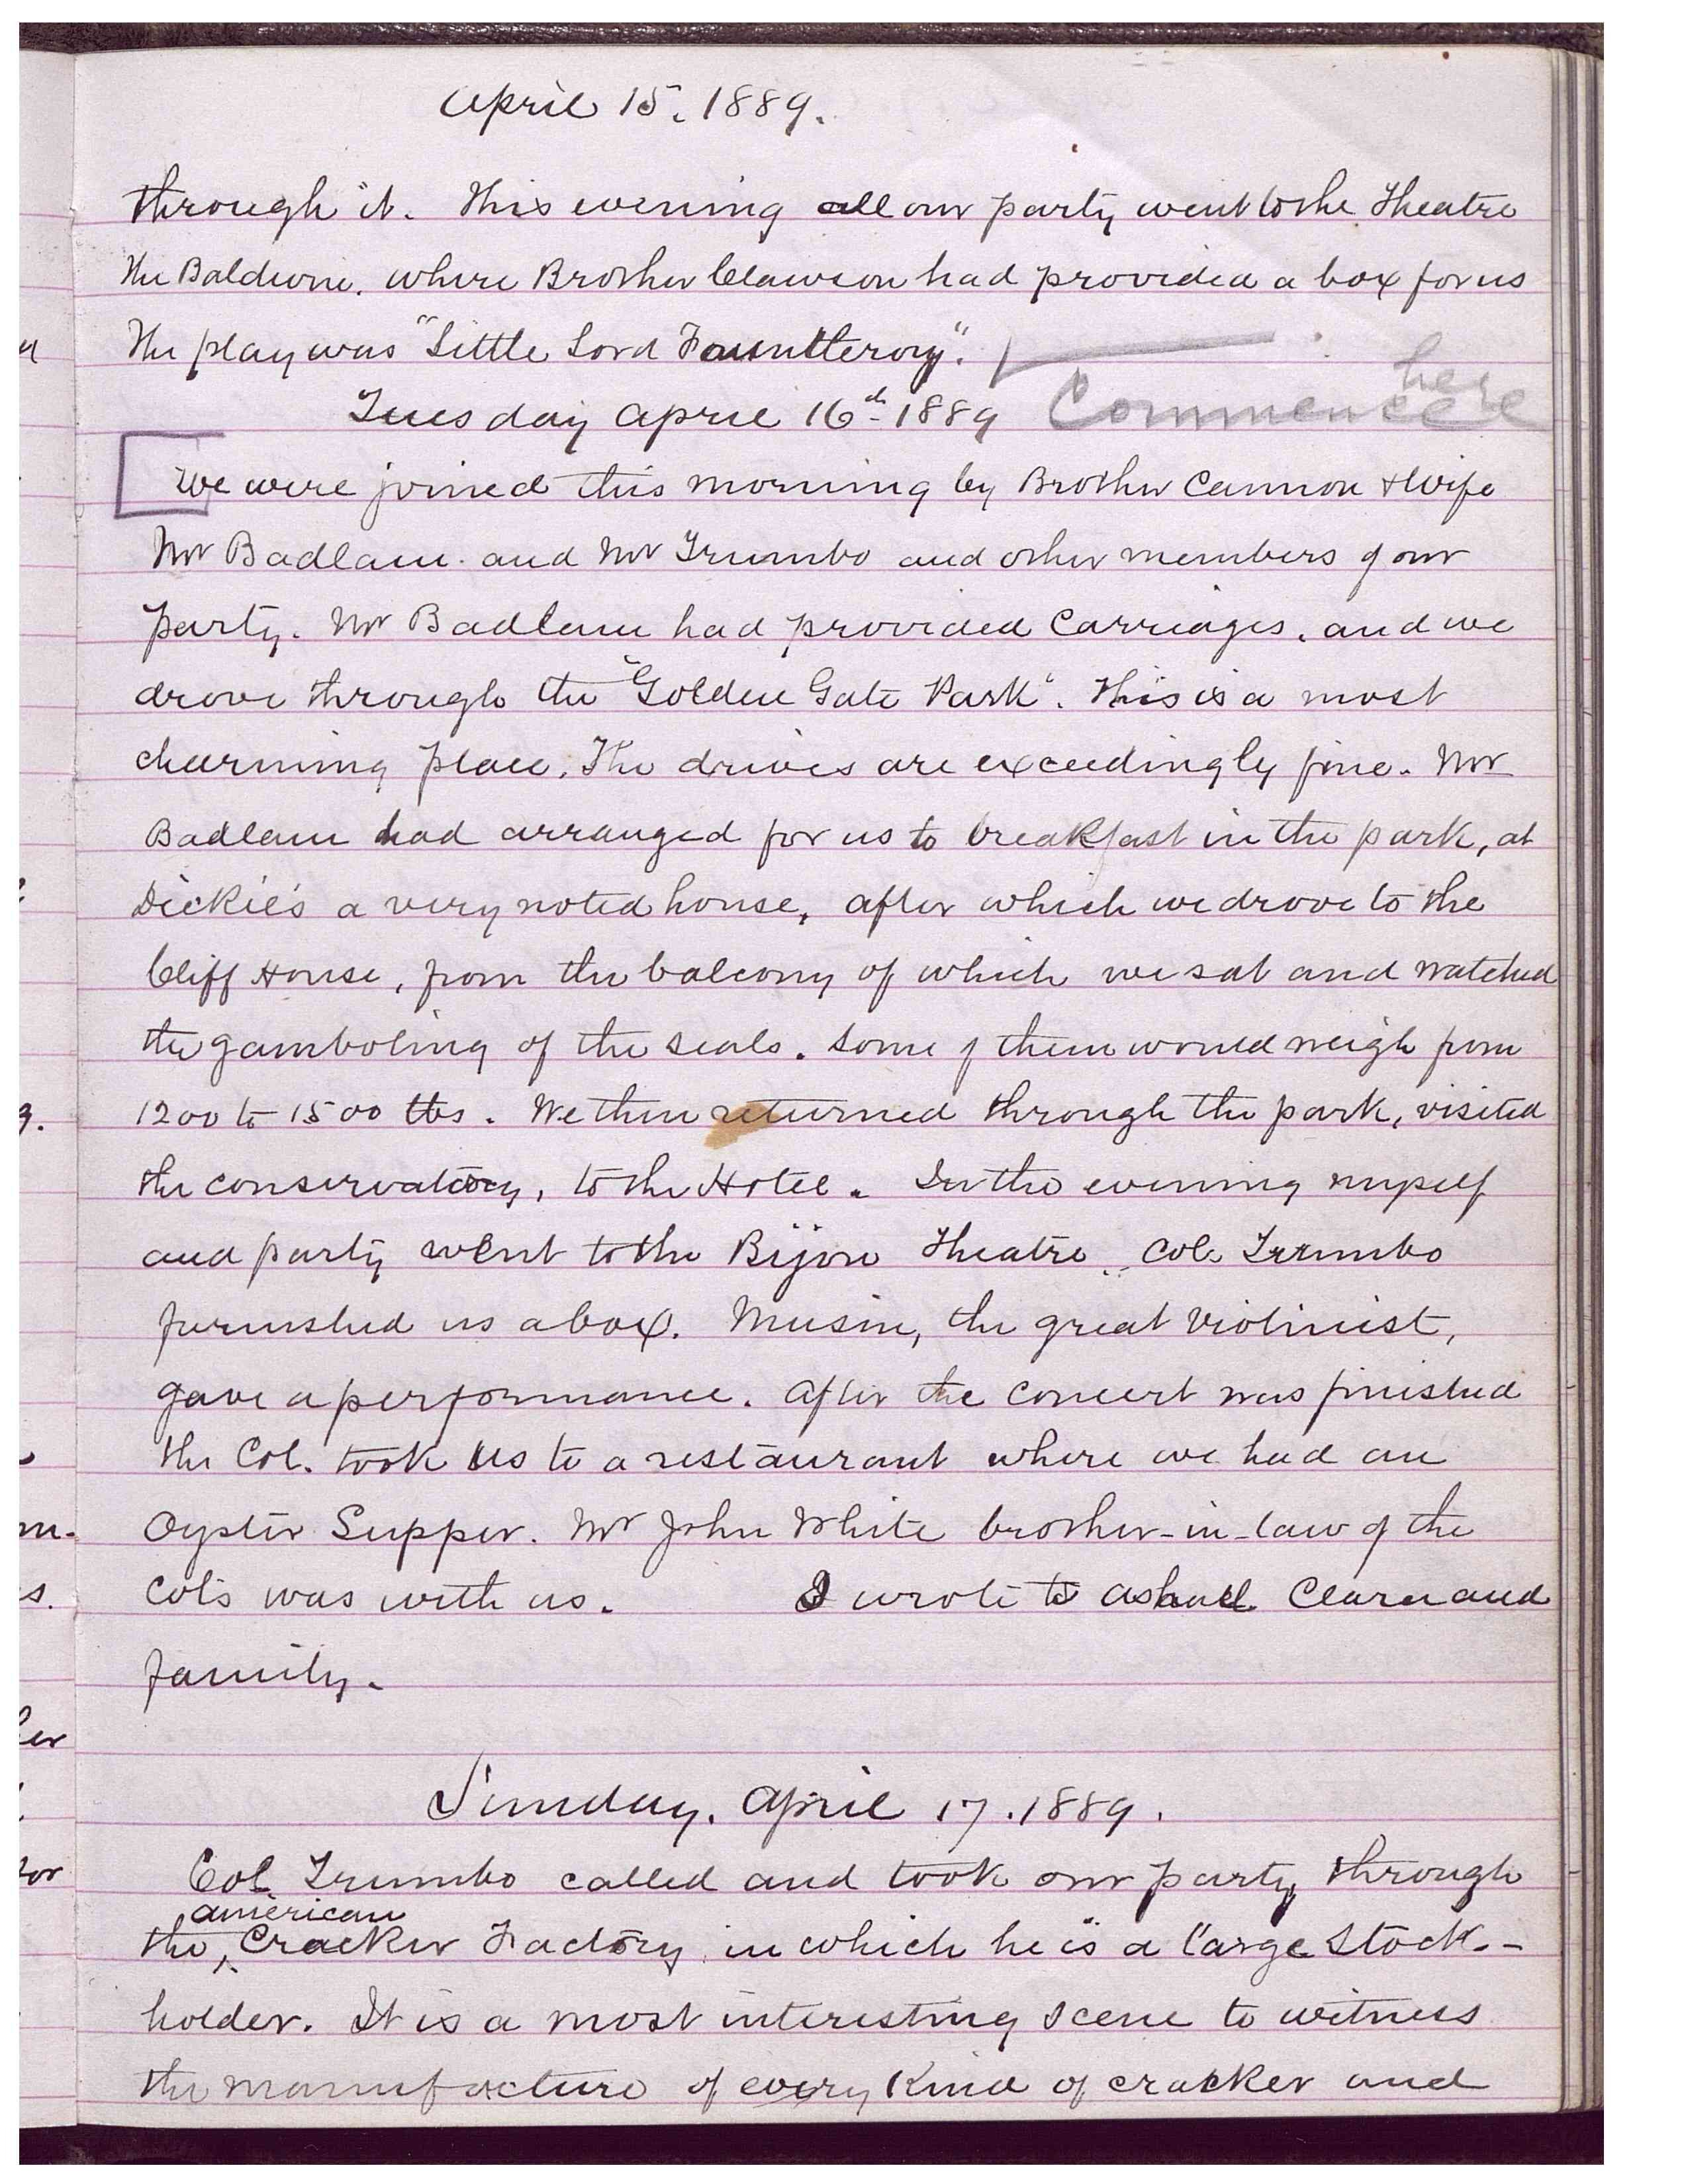 April 15. 1889.
through it. This evening all our party went to the Theatre
The Baldwin. where Brother Clawson had provided a box for us
The play was "Little Lord Fauntleroy".
here
Tuesday April 16th 1889 Commence
We were joined this morning by Brother Cannon & Wife
Mr Badlam. and Mr Trumbo and other members of our
party. Mr Badlam had provided Carriages, and we
drove through the "Golden Gate Park". This is a most
charming place. The drives are exceedingly fine. Mr
Badlam had arranged for us to breakfast in the park, at
Dickie's a very noted house, after which we drove to the
Cliff House, from the balcony of which we sat and watched
the gamboling of the seals. Some of them would weigh from
1200 to 1500 lbs. We then returned through the park, visited
the conservatory, to the Hotel. In the evening myself
and party went to the Bijou Theatre. Col. Trumbo
furnished us a box. Musin, the great Violinist,
gave a performance. After the Concert was finished
the Col. took us to a restaurant where we had an
Oyster Supper. Mr John White brother-in-law of the
Col's was with us. I wrote to Asahel Clara and
family.
Sunday. April 17. 1889.
Col. Trumbo called and took our party through
american
the ^ Cracker Factory in which he is a large Stock-
holder. It is a most interesting scene to witness
the manufacture of every kind of cracker and